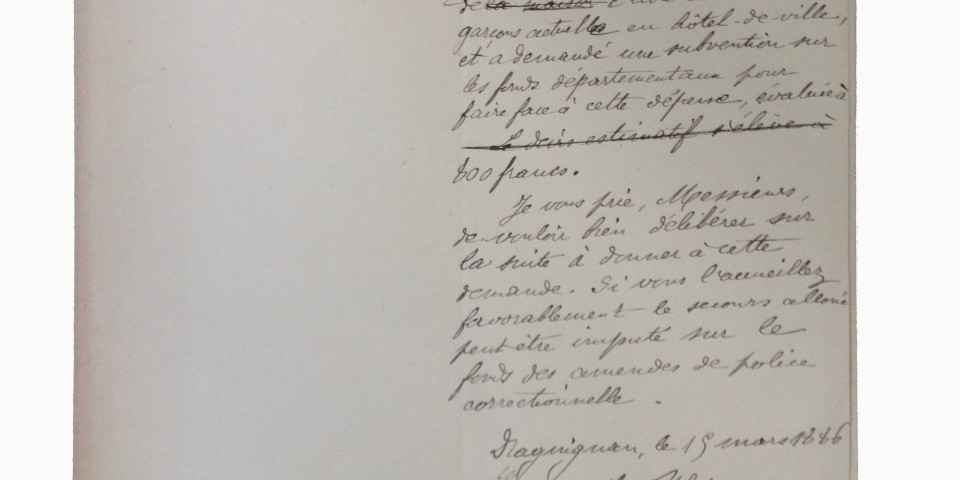 de la maison
garçons actuelle en hôtel-de-ville,
et a demandé une subvention sur
les fonds départementaux pour
faire face à cette dépense, évaluée à
Le devis estimatif s'élève à
800 francs.
Je vous prie, Messieurs,
de vouloir bien délibérer sur
la suite à donner à cette
demande. Si vous l'accueillez
favorablement le secours alloué
peut être imputé sur le
fonds des amendes de police
correctionnelle.
Draguignan, le 15 mars 1886